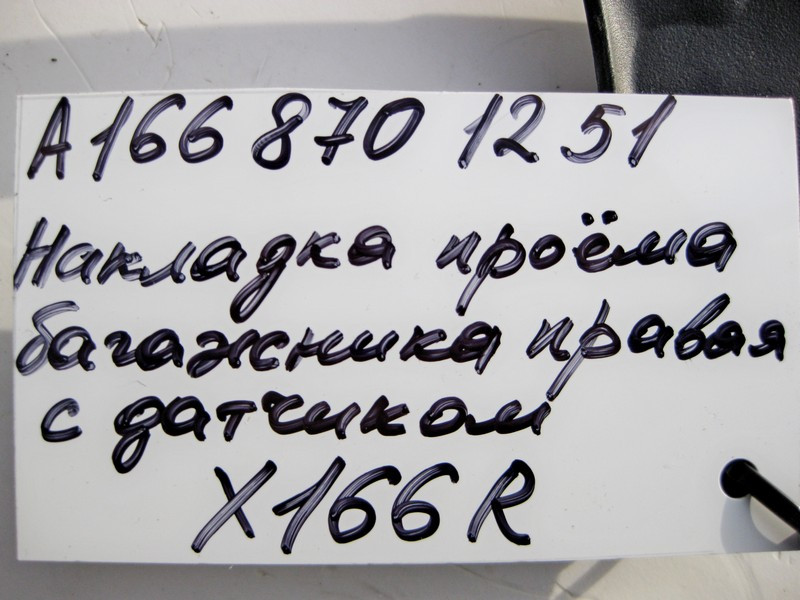 A166 870 1251
Накладка проёма
багажника правая
с датчиком
X166 R